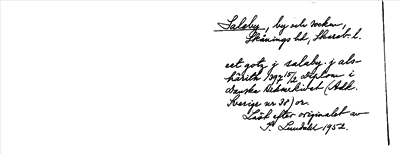 Salaby, by och socken,
Skånings hd, Skarab. l.
eet gotz j salaby j als-
härith 1397 15/2 Diplom i
danska Riksarkivet (Adl.
Sverige nr 30) or.
Läst efter originalet av
I. Lundahl 1952.